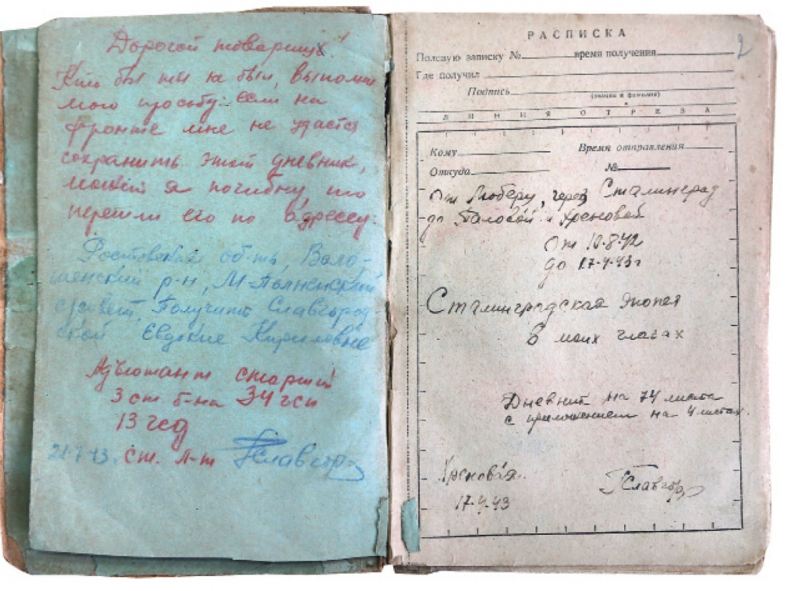 Дорогой товарищ!
Кто бы ты не был, выполни
мою просьбу: если на
фронте мне не удастся
сохранить этот дневник,
может я погибну, то
перешли его по адрессу:
Ростовская об-ть, Воло-
шенский р-н, М-Полненский
с/совет, Получить Славгород
ской Евдокие Кириловне
Адъютант старший
3 ст. б-на 34 гсп
13 гсд
ст. л-т Славгор
2
РАСПИСКА
Полевую записку № время получения
Где получил
Подпись
(звание и фамилия)
ЛИНИЯ ОТРЕЗА
Кому Время отправления
Откуда №
От Люберц, через Сталинград
до Таловой и Хреновой
От 10.8.42
до 17-4-43г
Сталинградская эпопея
в моих глазах
Дневник на 74 листа
с приложением на 4 листах.
Хреновая.
ГСлавгор
17.4.43